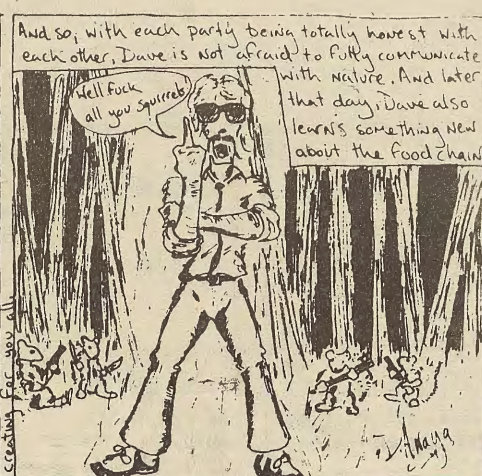 And so, with each party being totally honest with
each other, Dave is not afraid to fully communicate
with nature. And later
that day, Dave also
learns something new
about the food chain
Well fuck
all you squirrels
creating for you all
D. Amaya